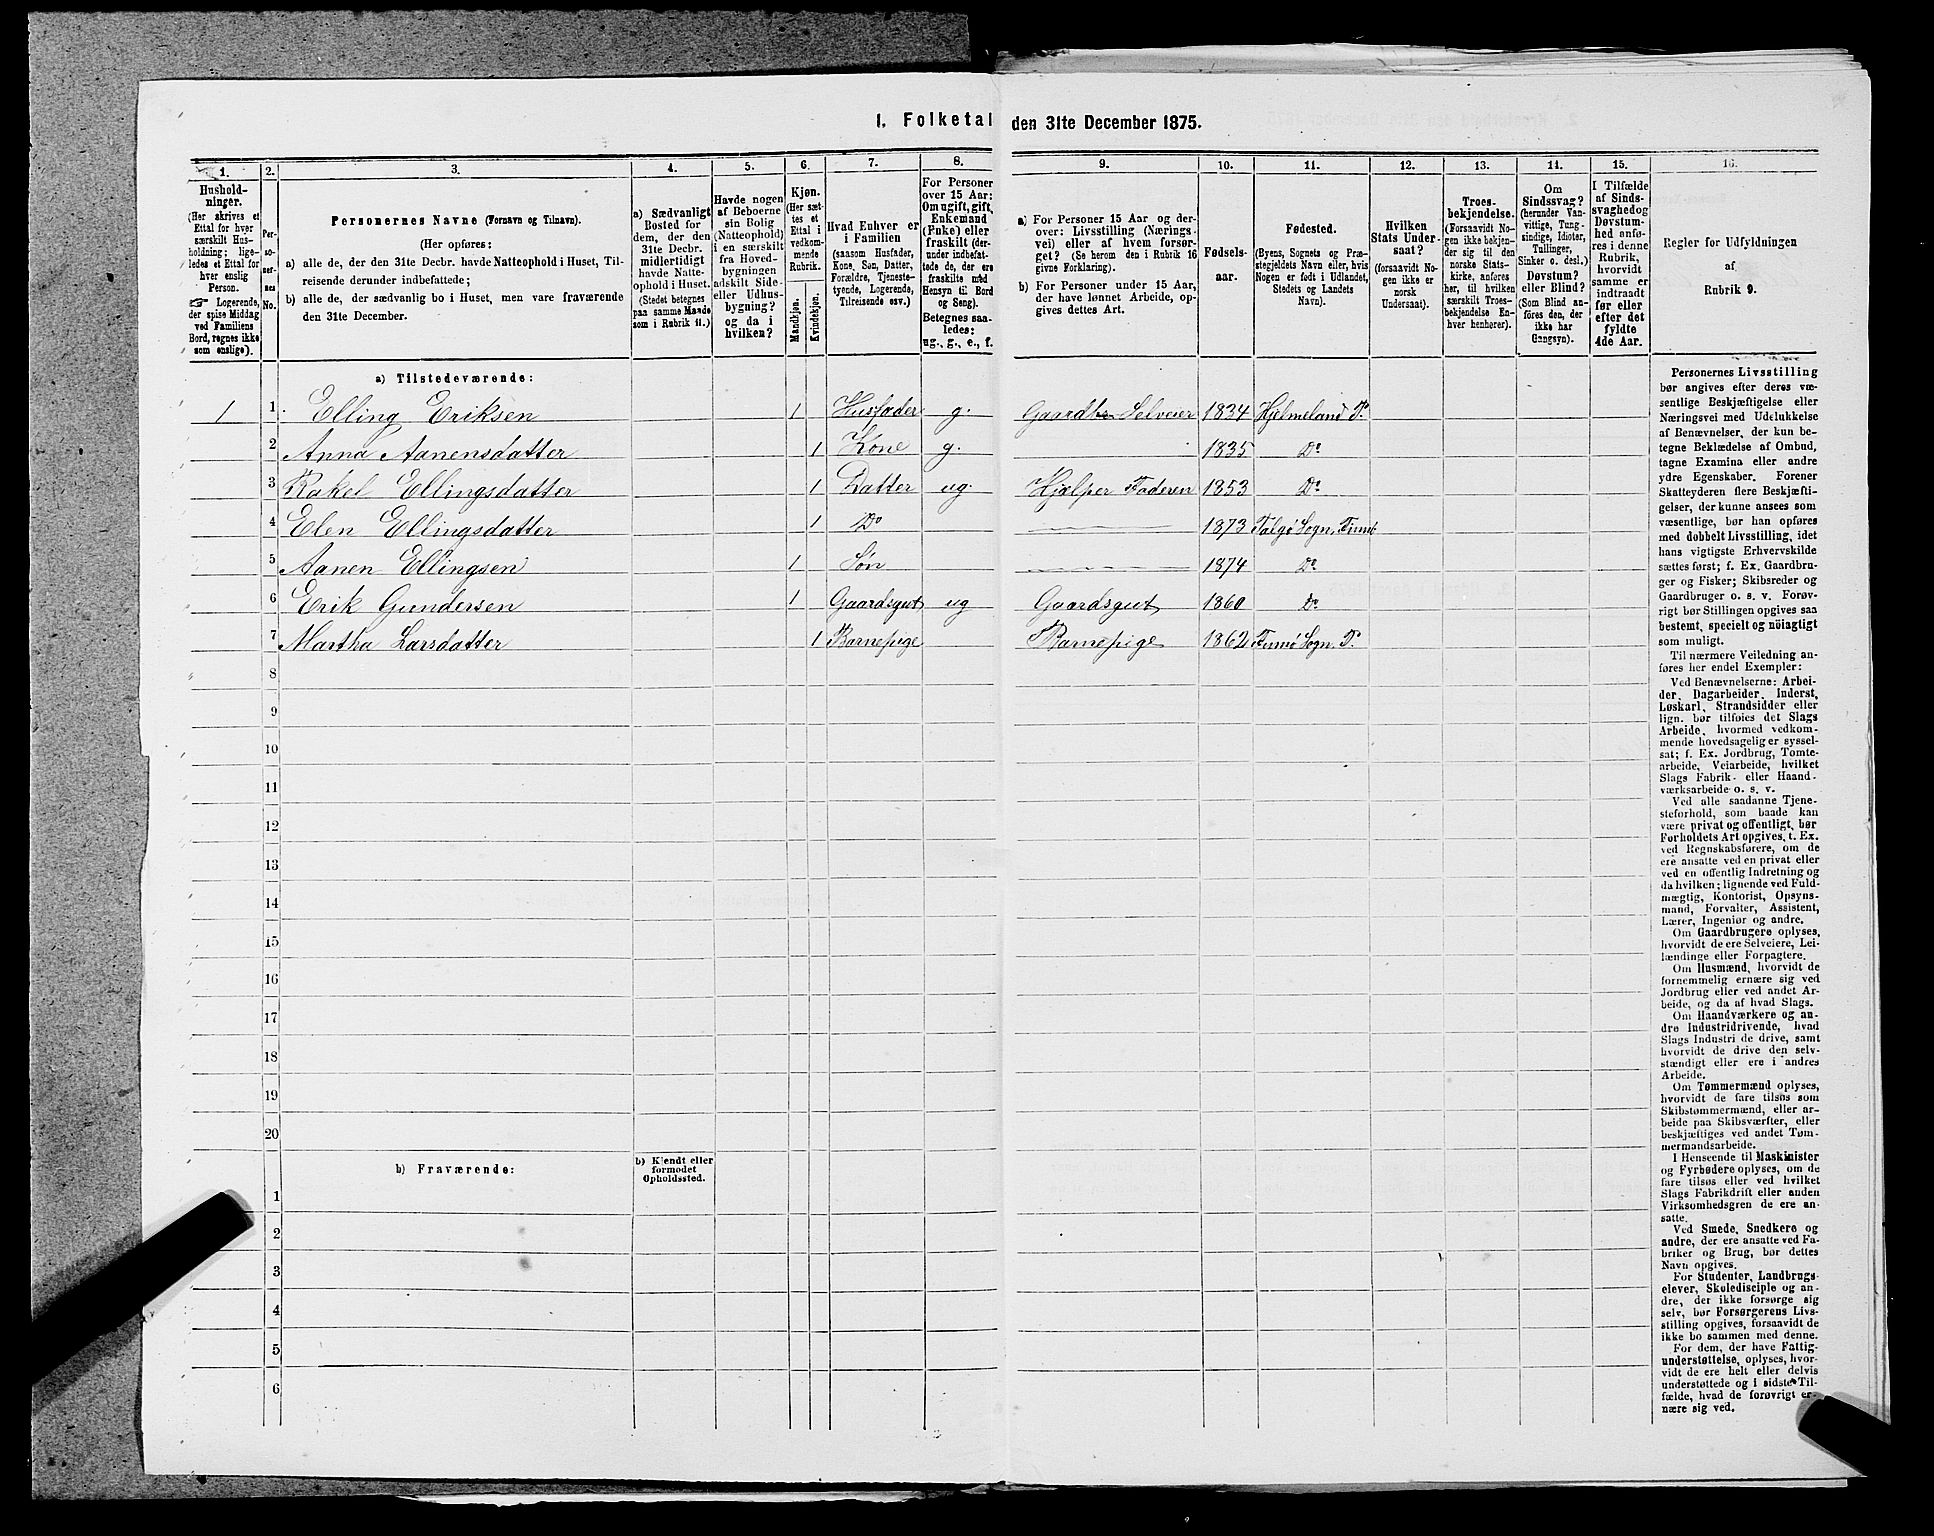 1. Folketal den 31te December 1875.
1. 2. 3. 4. 5. 6. 7. 8. 9. 10. 11. 12. 13. 14. 15. 16.
Hushold-
ninger.
(Her skrives et
Ettal for hver
særskilt Hus-
holdning; lige-
ledes et Ettal for
hver enslig
Person.
☞ Logerende,
der spise Middag
ved Familiens
Bord, regnes ikke
som enslige).
Per-
so-
ner-
nes
No.
Personernes Navne (Fornavn og Tilnavn).
(Her opføres:
a) alle de, der den 31te Decbr. havde Natteophold i Huset, Til-
reisende derunder indbefattede;
b) alle de, der sædvanlig bo i Huset, men vare fraværende
den 31te December.
a) Sædvanligt
Bosted for
dem, der den
31te Decbr.
midlertidigt
havde Natte-
ophold i Huset.
(Stedet betegnes
paa samme Maade
som i Rubrik 11.)
Havde nogen
af Beboerne
sin Bolig
(Natteophold)
i en særskilt
fra Hoved-
bygningen
adskilt Side-
eller Udhus-
bygning?
og da i
hvilken?
Kjøn.
(Her sæt-
tes et
Ettal i
vedkom-
mende
Rubrik.
Mandkjøn.
Kvindekjøn.
Hvad Enhver er
i Familien
(saasom Husfader,
Kone, Søn, Datter,
Forældre, Tjeneste-
tyende, Logerende,
Tilreisende osv.)
For Personer
over 15 Aar:
Om ugift, gift,
Enkemand
(Enke) eller
fraskilt (der-
under indbefat-
tede de, der ere
fraskilte med
Hensyn til Bord
og Seng).
Betegnes saa-
ledes:
ug., g., e., f.
a) For Personer 15 Aar og der-
over: Livsstilling (Nærings-
vei) eller af hvem forsør-
get? (Se herom den i Rubrik 16
givne Forklaring).
b) For Personer under 15 Aar,
der have lønnet Arbeide, op-
gives dettes Art.
Fødsels-
aar.
Fødested.
(Byens, Sognets og Præ-
stegjeldets Navn eller, hvis
Nogen er født i Udlandet,
Stedets og Landets
Navn).
Hvilken
Stats Under-
saat?
(forsaavidt No-
gen ikke er
norsk
Undersaat).
Troes-
bekjendelse.
(Forsaavidt No-
gen ikke bekjen-
der sig til den
norske Stats-
kirke, anføres
her, til hvilken
særskilt Troes-
bekjendelse En-
hver henhører).
Om
Sindssvag?
(herunder Van-
vittige, Tung-
sindige, Idioter,
Tullinger,
Sinker o. desl.)
Døvstum?
eller Blind?
(Som Blind an-
føres den, der
ikke har
Gangsyn).
I Tilfælde
af Sinds-
svaghed og
Døvstum-
hed anfø-
res i denne
Rubrik,
hvorvidt
samme er
indtraadt
før eller
efter det
fyldte
4de Aar.
Regler for Udfyldningen
af
Rubrik 9.
a) Tilstedeværende:
1 1 Elling Eriksen 1 Husfader g. Gaardbr Selveier 1834 Hjelmeland P.
2 Anna Aanensdatter 1 Kone g. 1835 Do
3 Rakel Ellingsdatter 1 Datter ug. Hjælper Faderen 1853 Do
4 Elen Ellingsdatter 1 Do 1873 Talgø Sogn,
5 Aanen Ellingsen 1 Søn 1874 Do
6 Erik Gundersen 1 Gaardsgut ug Gaardsgut 1860 Do
7 Martha Larsdatter 1 Barnepige Barnepige 1862 Sogn. P.
8
9
10
11
12
13
14
15
16
17
18
19
20
b) Fraværende:
b) Kjendt eller
formodet
Opholdssted.
1
2
3
4
5
6
Personernes Livsstilling
bør angives efter deres væ-
sentlige Beskjæftigelse eller
Næringsvei med Udelukkelse
af Benævnelser, der kun be-
tegne Beklædelse af Ombud,
tagne Examina eller andre
ydre Egenskaber. Forener
Skatteyderen flere Beskjæfti-
gelser, der kunne ansees som
væsentlige, bør han opføres
med dobbelt Livsstilling, idet
hans vigtigste Erhvervskilde
sættes først; f. Ex. Gaardbru-
ger og Fisker; Skibsreder og
Gaardbruger o. s. v. Forøv-
rigt bør Stillingen opgives saa
bestemt, specielt og nøiagtigt
som muligt.
Til nærmere Veiledning an-
føres her endel Exempler:
Ved Benævnelserne: Arbei-
der, Dagarbeider, Inderst,
Løskarl, Strandsidder eller
lign. bør tilføies det Slags
Arbeide, hvormed vedkom-
mende hovedsagelig er syssel-
sat; f. Ex. Jordbrug, Tomte-
arbeide, Veiarbeide, hvilket
Slags Fabrik- eller Haand-
værksarbeide o. s. v.
Ved alle saadanne Tjene-
steforhold, som baade kan
være privat og offentligt, bør
Forholdets Art opgives, t. Ex.
ved Regnskabsførere, om de
ere ansatte ved en privat eller
ved en offentlig Indretning og
da hvilken; lignende ved Fuld-
mægtig, Kontorist, Opsyns-
mand, Forvalter, Assistent,
Lærer, Ingeniør og andre.
Om Gaardbrugere oplyses,
hvorvidt de ere Selveiere, Lei-
lændinge eller Forpagtere.
Om Husmænd, hvorvidt de
fornemmelig ernære sig ved
Jordbrug eller ved andet Ar-
beide, og da af hvad Slags.
Om Haandværkere og an-
dre Industridrivende, hvad
Slags Industri de drive, samt
hvorvidt de drive den selv-
stændigt eller ere i andres
Arbeide.
Om Tømmermænd oplyses,
hvorvidt de fare tilsøs som
Skibstømmermænd, eller ar-
beide paa Skibsværfter, eller
beskjæftiges ved andet Tøm-
mermandsarbeide.
I Henseende til Maskinister
og Fyrbødere oplyses, om de
fare tilsøs eller ved hvilket
Slags Fabrikdrift eller anden
Virksomhedsgren de ere an-
satte.
Ved Smede, Snedkere og
andre, der ere ansatte ved Fa-
briker og Brug, bør dettes
Navn opgives.
For Studenter, Landbrugs-
elever, Skoledisciple og an-
dre, der ikke forsørge sig
selv, bør Forsørgerens Livs-
stilling opgives, forsaavidt de
ikke bo sammen med denne.
For dem, der have Fattig-
understøttelse, oplyses, hvor-
vidt de ere helt eller delvis
understøttede og i sidste Til-
fælde, hvad de forøvrigt er-
nære sig ved.